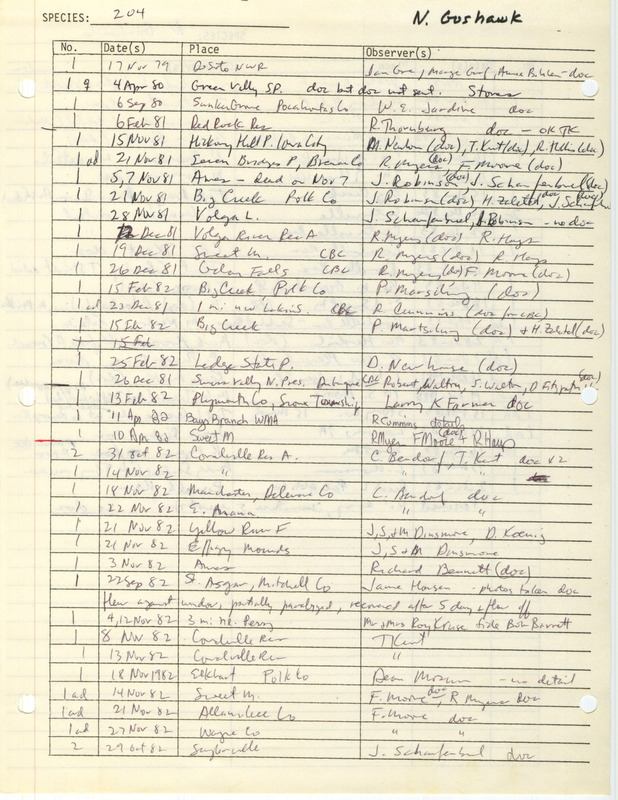 SPECIES: 204 N. Goshawk
No. Date(s) Place Observer(s)
1 17 Nov 79 DeSoto NWR doc
1 ♀ 4 Apr 80 Green Valley SP. doc but doc not sent. Stoner
1 6 Sep 80 Sunken Grove Pocahontas Co W. E. Jardine doc
1 6 Feb 81 Red Rock Res R. Thornburg doc - OK TK
1 15 Nov 81 Hickory Hill P. Iowa City M. Newlon (doc), T. Kent (doc), R. Hollis (doc)
1 ad 21 Nov 81 Seven Bridges P, Bremer Co R. Myers (doc) F. Moore (doc)
1 5,7 Nov 81 Ames - Dead on Nov 7 J. Robinson, J. Schaufenbuel (doc)
1 21 Nov 81 Big Creek Polk Co J. Robinson (doc) H. Zaletel, doc
1 28 Nov 81 Volga L. J. Schaufenbuel, Robinson - no doc
1 Dec 81 Volga River Rec A R. Myers (doc) R. Hays
1 19 Dec 81 Sweet M. CBC R. Myers (doc) R Hays
1 26 Dec 81 Cedar Falls CBC R. Myers (doc) F. Moore (doc)
1 15 Feb 82 Big Creek, Polk Co P. Martsching (doc)
1 ad 20 Dec 81 1 mi CBC R Cummins (doc in CBC)
1 15 Feb 82 Big Creek P. Martsching (doc) & H. Zaletel (doc)
1 15 Feb
1 25 Feb 82 Ledges State P. D. Newhouse (doc)
1 26 Dec 81 Swiss Valley N. Pres. Dubuque CBC Robert Walton, S. Walton, D. Fitzpatrick (doc)
1 13 Feb 82 Plymouth Co, Township Larry K Farmer doc
1 11 Apr 82 Bays Branch WMA R Cummins details
1 10 Apr 82 Sweet M R Myers F Moore (doc) & R Hays
2 31 Oct 82 Coralville Res A. C. Bendorf, T. Kent doc x2
1 14 Nov 82 " " "
1 18 Nov 82 Manchester, Delaware Co C. Bendorf doc
1 22 Nov 82 E. Amana " "
1 21 Nov 82 Yellow River F J, S, & M Dinsmore, D. Koenig
1 21 Nov 82 Effigy Mounds J, S & M Dinsmore
1 3 Nov 82 Ames Richard Bennett (doc)
1 22 Sep 82 St. Ansgar, Mitchell Co Jamie Hansen - photos taken doc
flew against window, partially paralyzed, recovered after 5 days & flew off
1 4,12 Nov 82 3 mi. ne. Perry Mr & Mrs Roy Kruse fide Bob Barrett
1 8 Nov 82 Coralville Res T Kent
1 13 Nov 82 Coralville Res "
1 18 Nov 1982 Elkhart Polk Co Dean Mosman - no detail
1 ad 14 Nov 82 Sweet M. F. Moore doc, R Myers doc
1 ad 21 Nov 82 Allamakee Co F. Moore doc
1 ad 27 Nov 82 Wayne Co " "
2 29 Oct 82 Saylorville J. Schaufenbuel doc